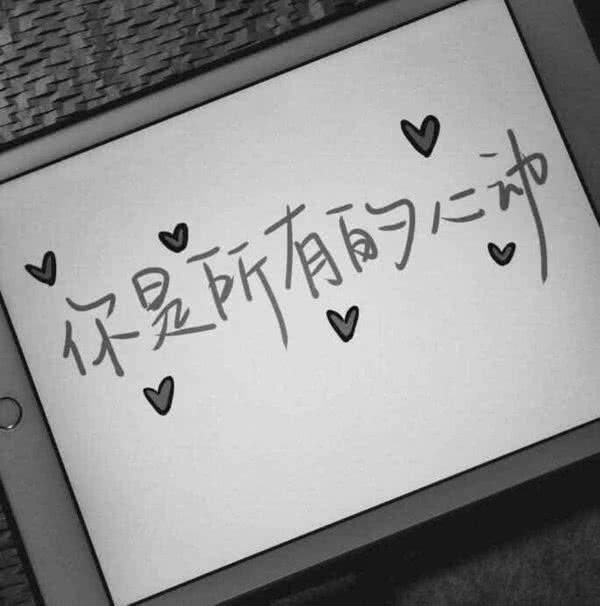 你是所有的心动